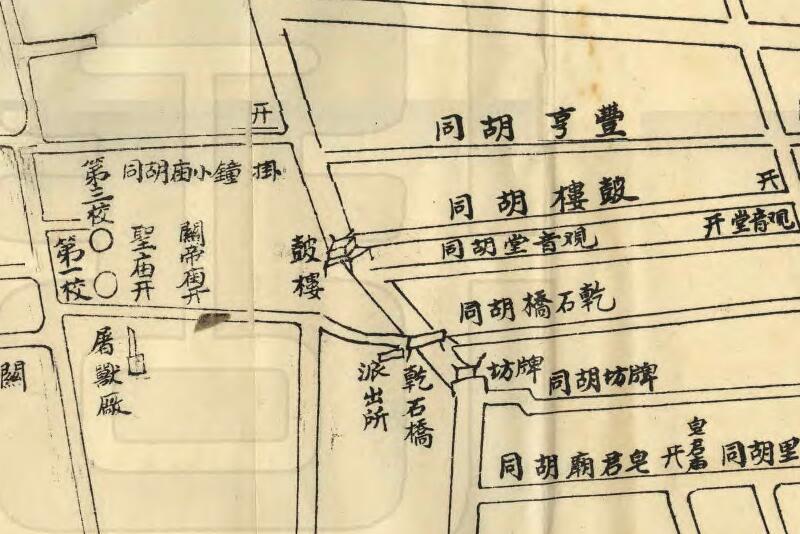 豐亨胡同
开
掛鐘小庙胡同
第三校
鼓樓胡同
开
观音堂开
观音堂胡同
鼓樓
關帝庙开
聖庙开
第一校
乾石橋胡同
牌坊
牌坊胡同
乾石橋
派出所
屠獸廠
關
里胡同
皂君庙
开
皂君廟胡同